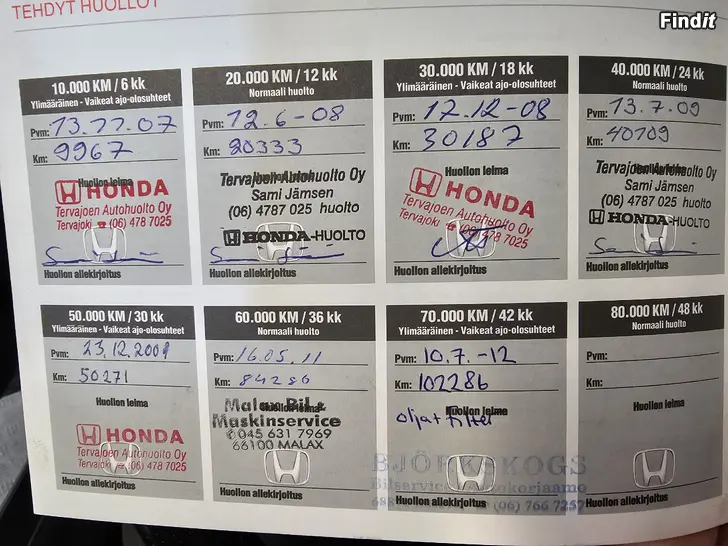 TEHDYT HUOLLOT
Findit
10.000 KM / 6 kk
Ylimääräinen - Vaikeat ajo-olosuhteet
Pvm: 13.11.07
Km: 9967
Huollon leima
HONDA
Tervajoen Autohuolto Oy
Tervajoki ☎ (06) 478 7025
Huollon allekirjoitus
20.000 KM / 12 kk
Normaali huolto
Pvm: 12.6-08
Km: 20333
Huollon leima
Tervajoen Autohuolto Oy
Sami Jämsen
(06) 4787 025 huolto
HONDA-HUOLTO
Huollon allekirjoitus
30.000 KM / 18 kk
Ylimääräinen - Vaikeat ajo-olosuhteet
Pvm: 17.12-08
Km: 30187
Huollon leima
HONDA
Tervajoen Autohuolto Oy
Tervajoki ☎ (06) 478 7025
Huollon allekirjoitus
40.000 KM / 24 kk
Normaali huolto
Pvm: 13.7.09
Km: 40109
Huollon leima
Tervajoen Autohuolto Oy
Sami Jämsen
(06) 4787 025 huolto
HONDA-HUOLTO
Huollon allekirjoitus
50.000 KM / 30 kk
Ylimääräinen - Vaikeat ajo-olosuhteet
Pvm: 23.12.2009
Km: 50271
Huollon leima
HONDA
Tervajoen Autohuolto Oy
Tervajoki ☎ (06) 478 7025
Huollon allekirjoitus
60.000 KM / 36 kk
Normaali huolto
Pvm: 16.05.11
Km: 84286
Huollon leima
Malax Bil &
Maskinservice
✆ 045 631 7969
66100 MALAX
Huollon allekirjoitus
70.000 KM / 42 kk
Ylimääräinen - Vaikeat ajo-olosuhteet
Pvm: 10.7.-12
Km: 102286
Huollon leima
öljat filter
BJÖRKSKOGS
Bilservice Autokorjaamo
(06) 766 7257
Huollon allekirjoitus
80.000 KM / 48 kk
Normaali huolto
Pvm:
Km:
Huollon leima
Huollon allekirjoitus